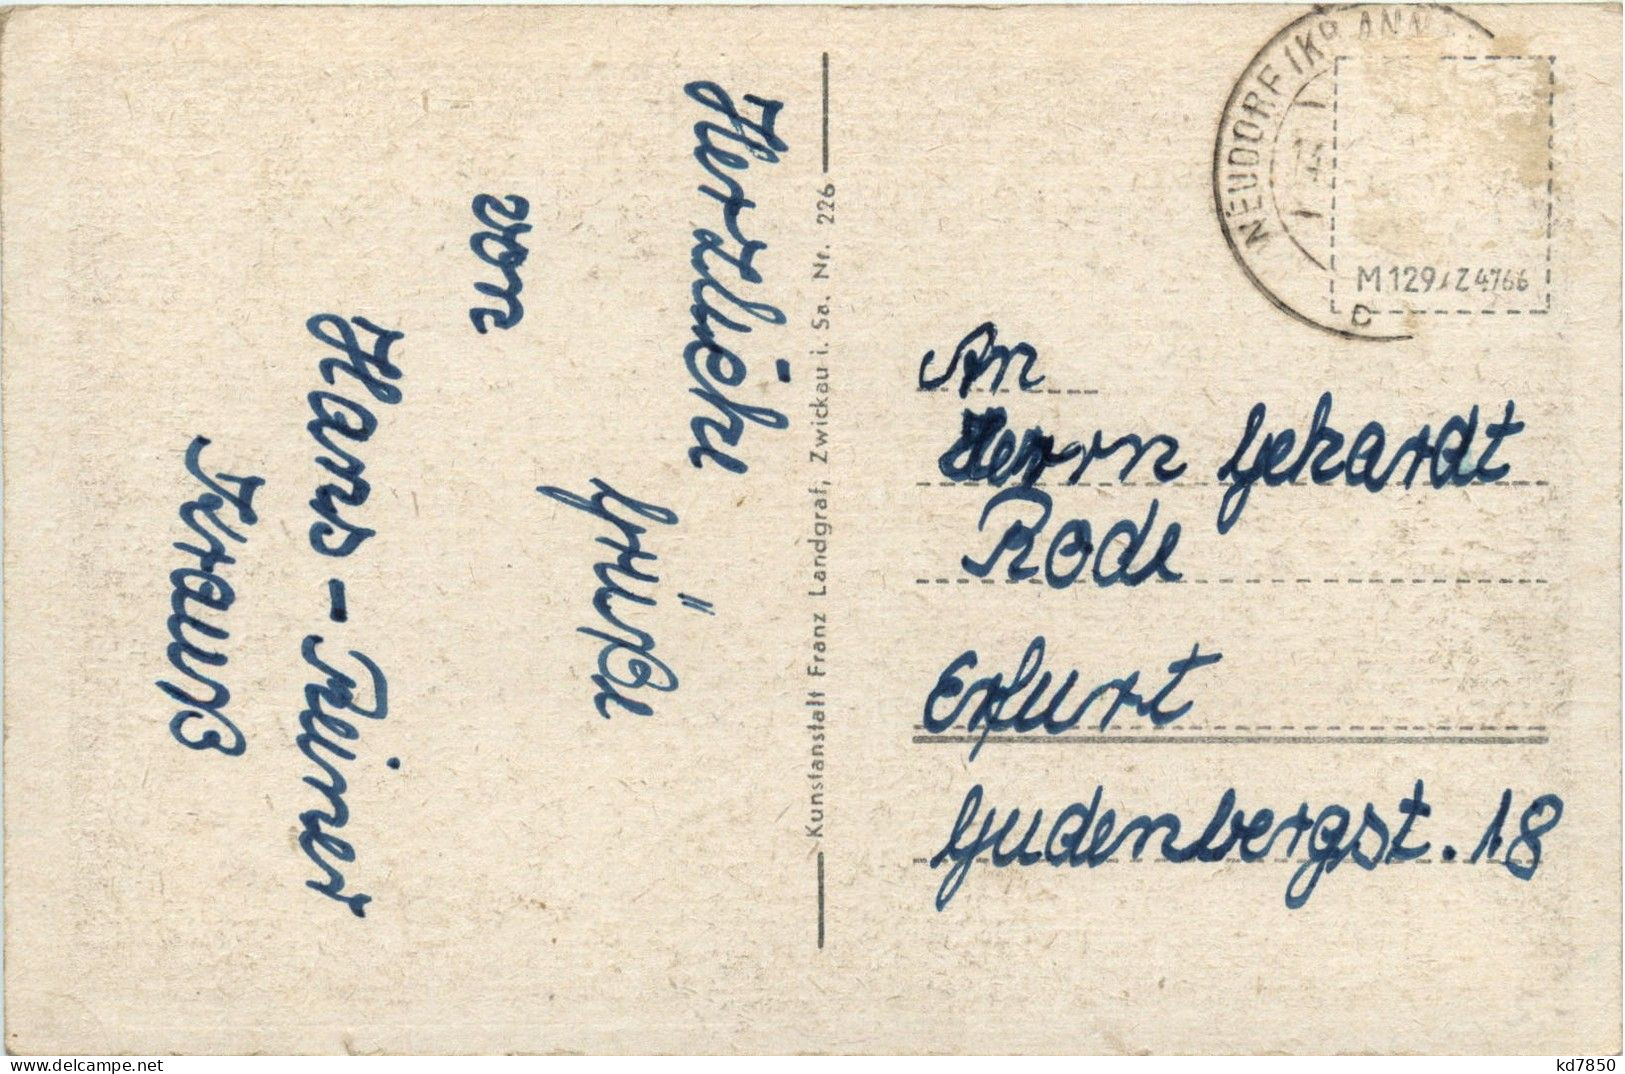 Herzliche
Grüße
von
Hans-Reiner
Krauß
Kunstanstalt Franz Landgraf, Zwickau i. Sa. Nr. 226
NEUDORF (KR ANN
M129/Z4766
An
Herrn Gehardt
Rode
Erfurt
Gudenbergst. 18
delcampe.net
kd7850